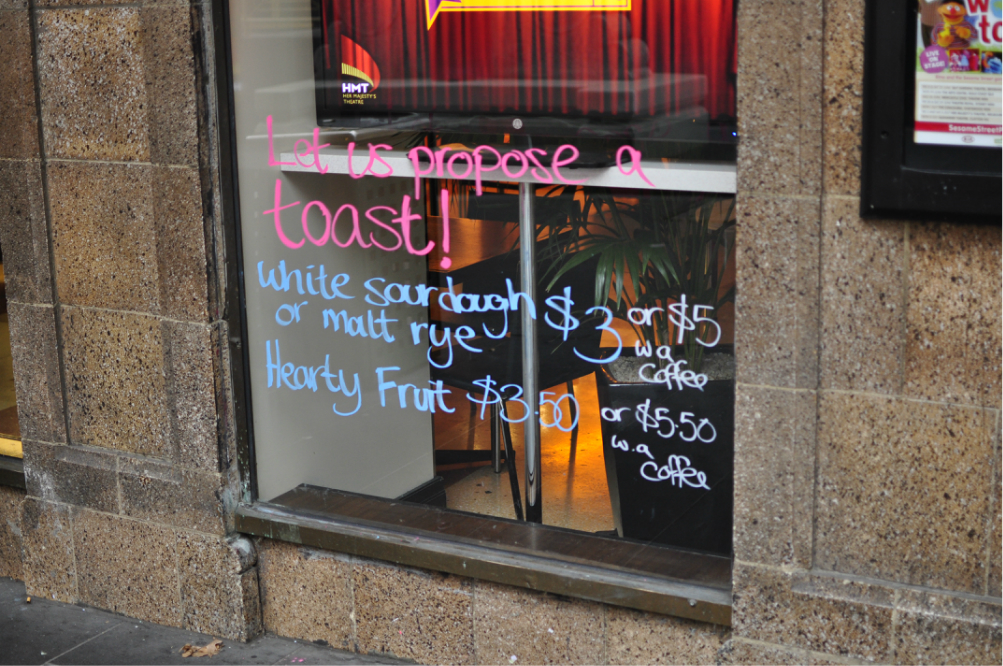 HMT
HER MAJESTY'S
THEATRE
Let us propose a
toast!
White Sourdough $3 or $5
or malt rye w a
Coffee
Hearty Fruit $3.50 or $5.50
w.a
Coffee
W
to
LIVE
ON
STAGE!
SesameStree